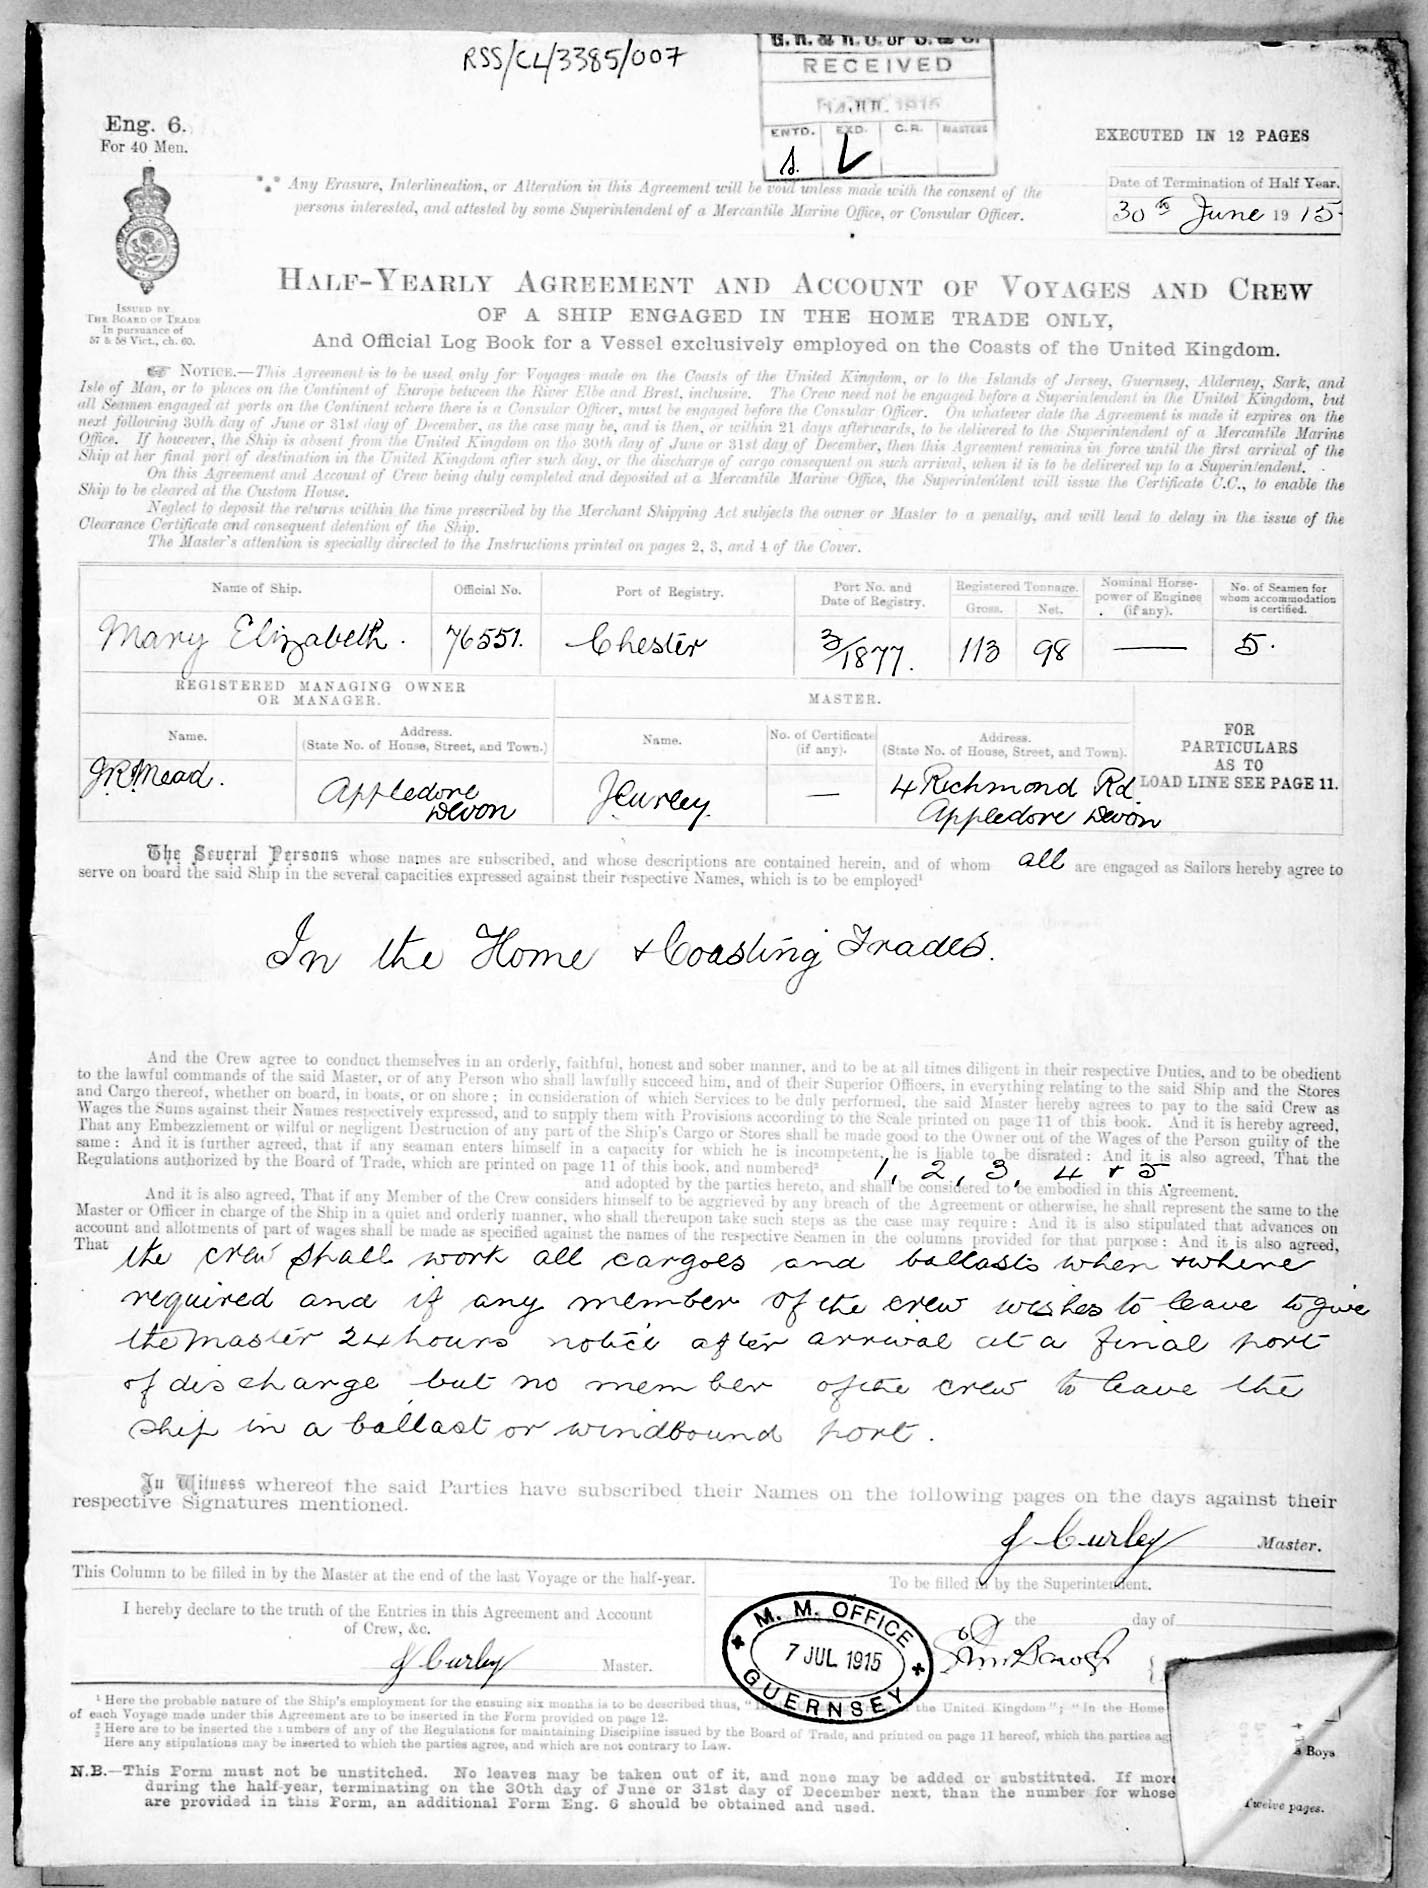 RSS/CL/3385/007
RECEIVED
JUL 1915
ENTD. EXD. C.R. MASTERS
Eng. 6.
For 40 Men.
EXECUTED IN 12 PAGES
Any Erasure, Interlineation, or Alteration in this Agreement will be void unless made with the consent of the
persons interested, and attested by some Superintendent of a Mercantile Marine Office, or Consular Officer.
Date of Termination of Half Year.
30th June 1915
ISSUED BY
THE BOARD OF TRADE
In pursuance of
57 & 58 Vict., ch. 60.
HALF-YEARLY AGREEMENT AND ACCOUNT OF VOYAGES AND CREW
OF A SHIP ENGAGED IN THE HOME TRADE ONLY,
And Official Log Book for a Vessel exclusively employed on the Coasts of the United Kingdom.
☞ NOTICE.—This Agreement is to be used only for Voyages made on the Coasts of the United Kingdom, or to the Islands of Jersey, Guernsey, Alderney, Sark, and
Isle of Man, or to places on the Continent of Europe between the River Elbe and Brest, inclusive. The Crew need not be engaged before a Superintendent in the United Kingdom, but
all Seamen engaged at ports on the Continent where there is a Consular Officer, must be engaged before the Consular Officer. On whatever date the Agreement is made it expires on the
next following 30th day of June or 31st day of December, as the case may be, and is then, or within 21 days afterwards, to be delivered to the Superintendent of a Mercantile Marine
Office. If however, the Ship is absent from the United Kingdom on the 30th day of June or 31st day of December, then this Agreement remains in force until the first arrival of the
Ship at her final port of destination in the United Kingdom after such day, or the discharge of cargo consequent on such arrival, when it is to be delivered up to a Superintendent.
On this Agreement and Account of Crew being duly completed and deposited at a Mercantile Marine Office, the Superintendent will issue the Certificate C.C., to enable the
Ship to be cleared at the Custom House.
Neglect to deposit the returns within the time prescribed by the Merchant Shipping Act subjects the owner or Master to a penalty, and will lead to delay in the issue of the
Clearance Certificate and consequent detention of the Ship.
The Master's attention is specially directed to the Instructions printed on pages 2, 3, and 4 of the Cover.
Name of Ship. Official No. Port of Registry. Port No. and Date of Registry. Registered Tonnage. Gross. Net. Nominal Horse-power of Engines (if any). No. of Seamen for whom accommodation is certified.
Mary Elizabeth. 76551. Chester 3/1877. 113 98 — 5.
REGISTERED MANAGING OWNER OR MANAGER. MASTER.
FOR PARTICULARS AS TO LOAD LINE SEE PAGE 11.
Name. Address. (State No. of House, Street, and Town.) Name. No. of Certificate (if any). Address. (State No. of House, Street, and Town).
J.R. Mead. Appledore Devon J Curley — 4 Richmond Rd. Appledore Devon
The Several Persons whose names are subscribed, and whose descriptions are contained herein, and of whom all are engaged as Sailors hereby agree to
serve on board the said Ship in the several capacities expressed against their respective Names, which is to be employed¹
In the Home & Coasting Trades.
And the Crew agree to conduct themselves in an orderly, faithful, honest and sober manner, and to be at all times diligent in their respective Duties, and to be obedient
to the lawful commands of the said Master, or of any Person who shall lawfully succeed him, and of their Superior Officers, in everything relating to the said Ship and the Stores
and Cargo thereof, whether on board, in boats, or on shore; in consideration of which Services to be duly performed, the said Master hereby agrees to pay to the said Crew as
Wages the Sums against their Names respectively expressed, and to supply them with Provisions according to the Scale printed on page 11 of this book. And it is hereby agreed,
That any Embezzlement or wilful or negligent Destruction of any part of the Ship's Cargo or Stores shall be made good to the Owner out of the Wages of the Person guilty of the
same: And it is further agreed, that if any seaman enters himself in a capacity for which he is incompetent, he is liable to be disrated: And it is also agreed, That the
Regulations authorized by the Board of Trade, which are printed on page 11 of this book, and numbered² 1, 2, 3, 4 & 5.
and adopted by the parties hereto, and shall be considered to be embodied in this Agreement.
And it is also agreed, That if any Member of the Crew considers himself to be aggrieved by any breach of the Agreement or otherwise, he shall represent the same to the
Master or Officer in charge of the Ship in a quiet and orderly manner, who shall thereupon take such steps as the case may require: And it is also stipulated that advances on
account and allotments of part of wages shall be made as specified against the names of the respective Seamen in the columns provided for that purpose: And it is also agreed,
That the crew shall work all cargoes and ballasts when & where
required and if any member of the crew wishes to leave to give
the Master 24 hours notice after arrival at a final port
of discharge but no member of the crew to leave the
ship in a ballast or windbound port.
In Witness whereof the said Parties have subscribed their Names on the following pages on the days against their
respective Signatures mentioned.
J Curley Master.
This Column to be filled in by the Master at the end of the last Voyage or the half-year.
To be filled in by the Superintendent.
I hereby declare to the truth of the Entries in this Agreement and Account
of Crew, &c.
J Curley Master.
M. M. OFFICE
7 JUL 1915
GUERNSEY
the day of
¹ Here the probable nature of the Ship's employment for the ensuing six months is to be described thus, " the United Kingdom"; "In the Home
of each Voyage made under this Agreement are to be inserted in the Form provided on page 12.
² Here are to be inserted the numbers of any of the Regulations for maintaining Discipline issued by the Board of Trade, and printed on page 11 hereof, which the parties
³ Here any stipulations may be inserted to which the parties agree, and which are not contrary to Law.
Boys
N.B.—This Form must not be unstitched. No leaves may be taken out of it, and none may be added or substituted. If more
during the half-year, terminating on the 30th day of June or 31st day of December next, than the number for whose
are provided in this Form, an additional Form Eng. 6 should be obtained and used.
Twelve pages.